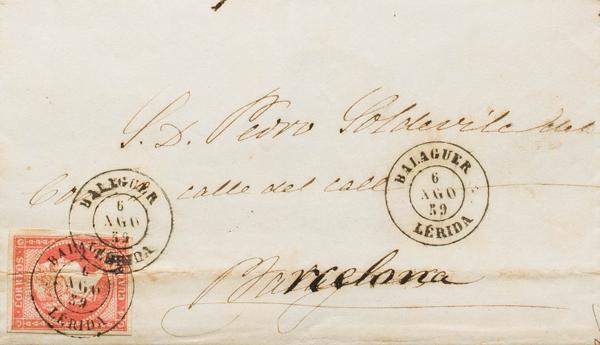 S. D. Pedro Soldevila del
Co calle del call
Barcelona
BALAGUER
6
AGO
59
LÉRIDA
BALAGUER
6
AGO
59
LÉRIDA
BALAGUER
6
AGO
59
LÉRIDA
CORREOS
CUA